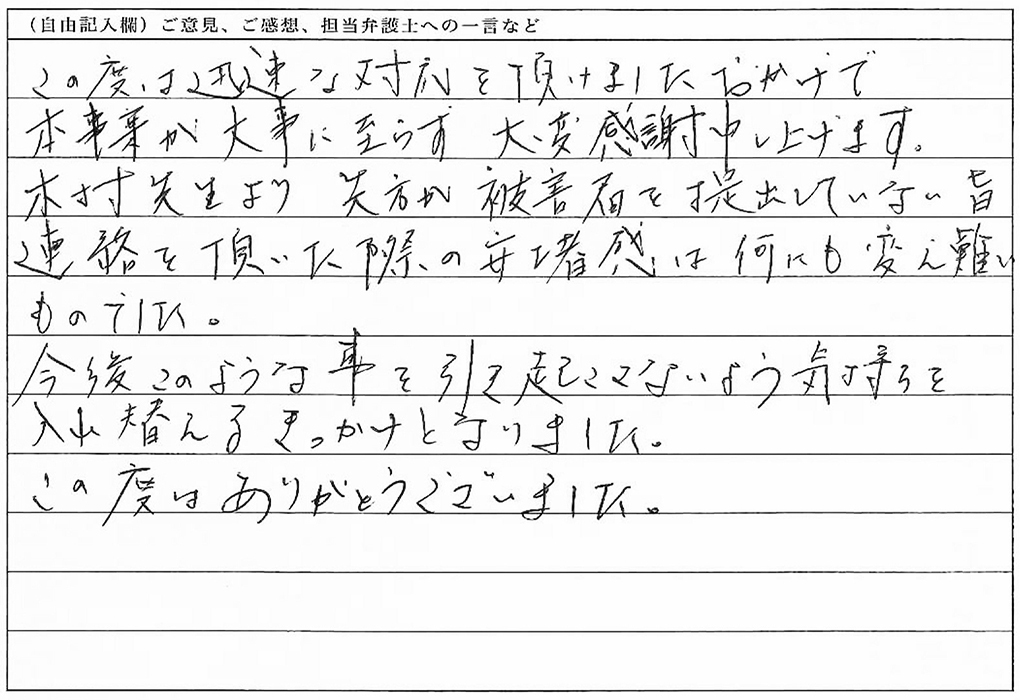 （自由記入欄）ご意見、ご感想、担当弁護士への一言など
この度は迅速な対応を頂けましたおかげで
本事案が大事に至らず 大変感謝申し上げます。
木村先生より 先方が被害届を提出していない旨
連絡を頂いた際の安堵感は何にも変え難い
ものでした。
今後このような事を引き起こさないよう気持ちを
入れ替えるきっかけとなりました。
この度はありがとうございました。